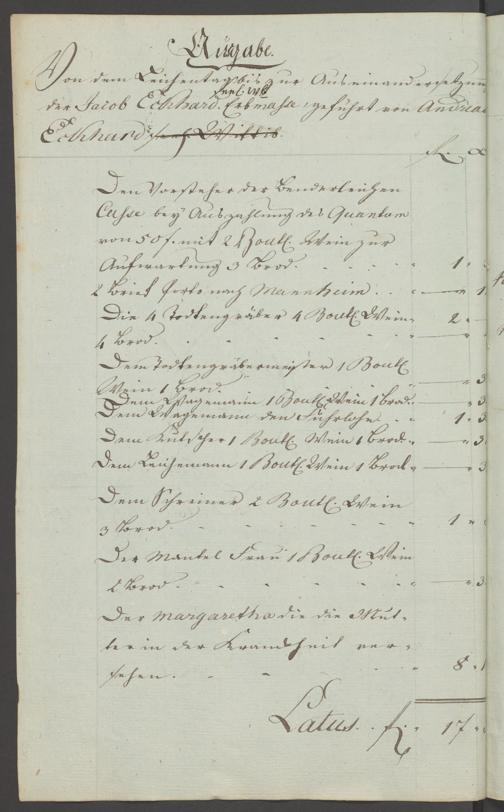 Ausgabe
Von dem Leichentag bis zur Auseinandersetzung
der Jacob Eckhard. seel. Wb Erbmasa, geführt von Andrea
Eckhard
f.
Den Vorsteher der Benderleichen
Casse bey Auszahlung des Quantum
von 50 f. mit 2 Boutl. Wein zur
Aufwartung 3 Brod. 1
2 Brief porto nach Mannheim. 1
Die 4 Todtengräber 4 Boutl. Wein 2
4 Brod.
Dem Todtengräbermeister 1 Boutl
Wein 1 Brod. 3
Dem Wagemann 1 Boutl. Wein 1 Brod. 3
Dem Wagemann den Fuhrlohn 1 . 3
Dem Kutscher 1 Boutl. Wein 1 Brod. 3
Dem Leichemann 1 Boutl. Wein 1 Brod 3
Dem Schreiner 2 Boutl. Wein
3 Brod. 1
Der Mantel Frau 1 Boutl. Wein
1 Brod. 3
Der Margaretha die die Mut-
ter in der Krankheit ver-
sehen. 8
Latus. f. 17